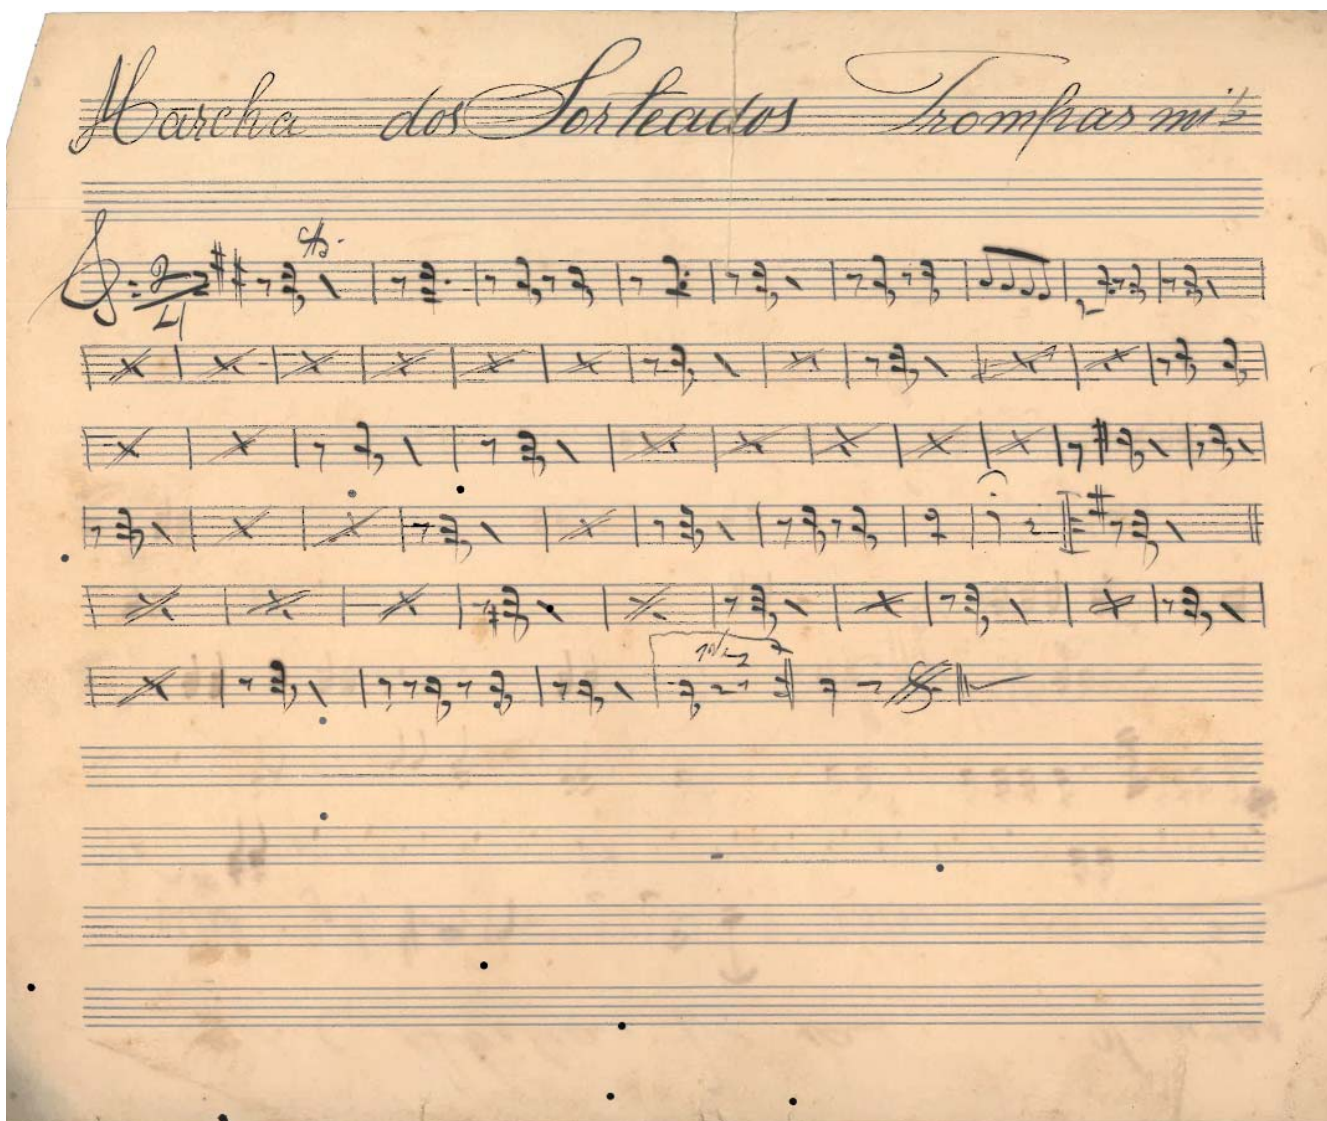 Marcha dos Sorteados Trompas mi b
2
4